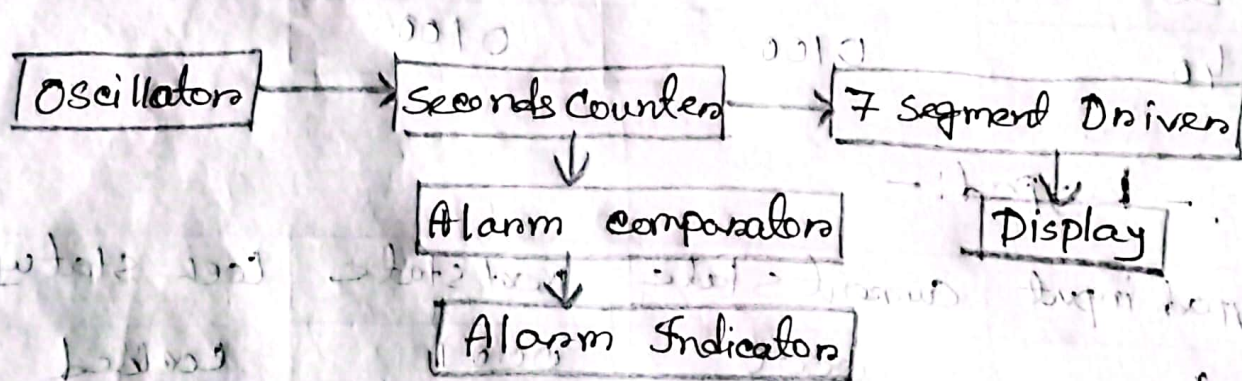 Oscillator
Seconds Counter
7 Segment Driver
Alarm comparator
Display
Alarm Indicator